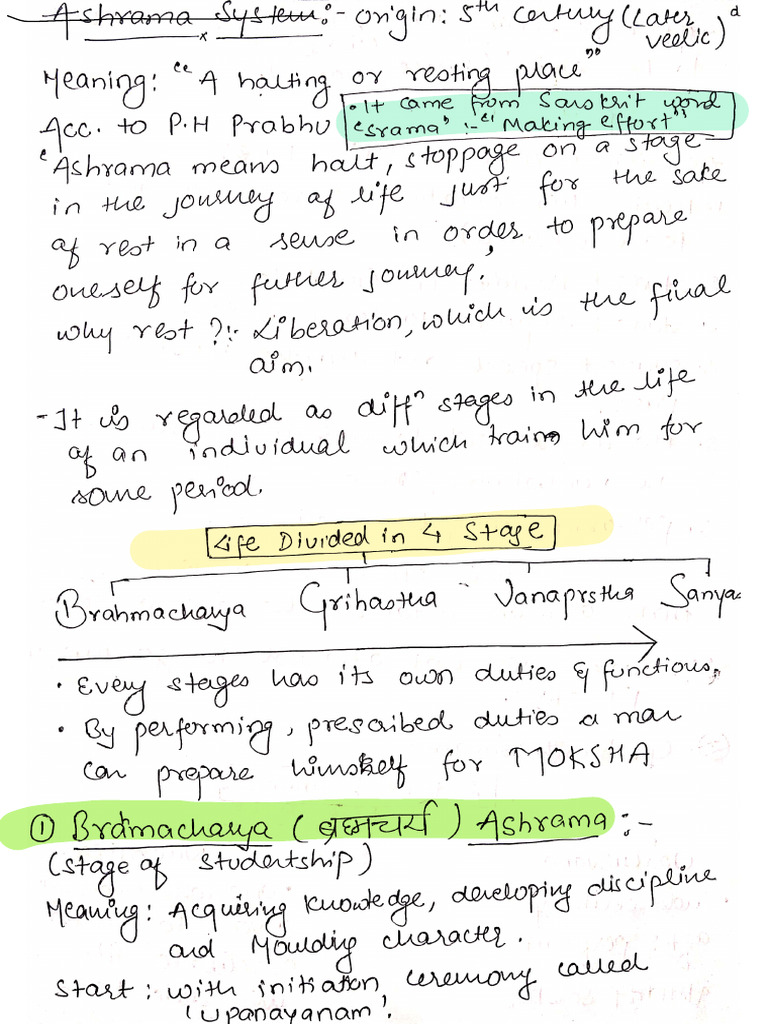 Ashrama System:- Origin: 5th century (Later
vedic)
Meaning: "A halting or resting place"
• It came from Sanskrit word
"srama" :- "Making effort"
Acc. to P.H Prabhu
'Ashrama means halt, stoppage on a stage
in the journey of life just for the sake
of rest in a sense in order to prepare
oneself for futher journey.'
why rest ?:- Liberation, which is the final
aim.
- It is regarded as diffn stages in the life
of an individual which trains him for
some period.
Life Divided in 4 Stage
Brahmacharya Grihastha Vanaprstha Sanya
• Every stages has its own duties & functions.
• By performing, prescribed duties a man
can prepare himself for MOKSHA
① Brahmacharya (ब्रह्मचर्य) Ashrama :-
(stage of studentship)
Meaning: Acquiring knowledge, developing discipline
and Moulding character.
Start : with initiation, ceremony called
'Upanayanam'.